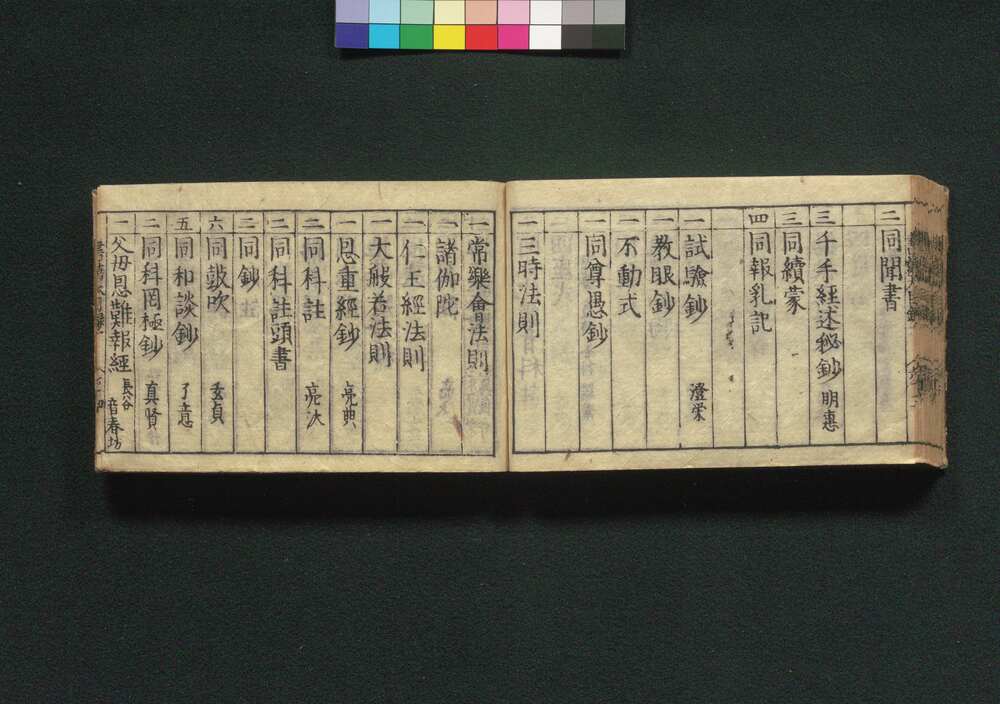 二 同聞書
三 千手經述秘鈔 明惠
三 同續蒙
四 同報乳記
一 試驗鈔 澄栄
一 教眼鈔
一 不動式
一 同尊愚鈔
一 三時法則
一 常樂會法則
一 諸伽陀
一 仁王經法則
一 大般若法則
一 恩重經鈔 亮典
二 同科註 亮汰
二 同科註頭書
三 同鈔
六 同鼓吹 玄貞
五 同和談鈔 了意
二 同科罔極鈔 真賢
一 父母恩難報經 長谷 音春坊